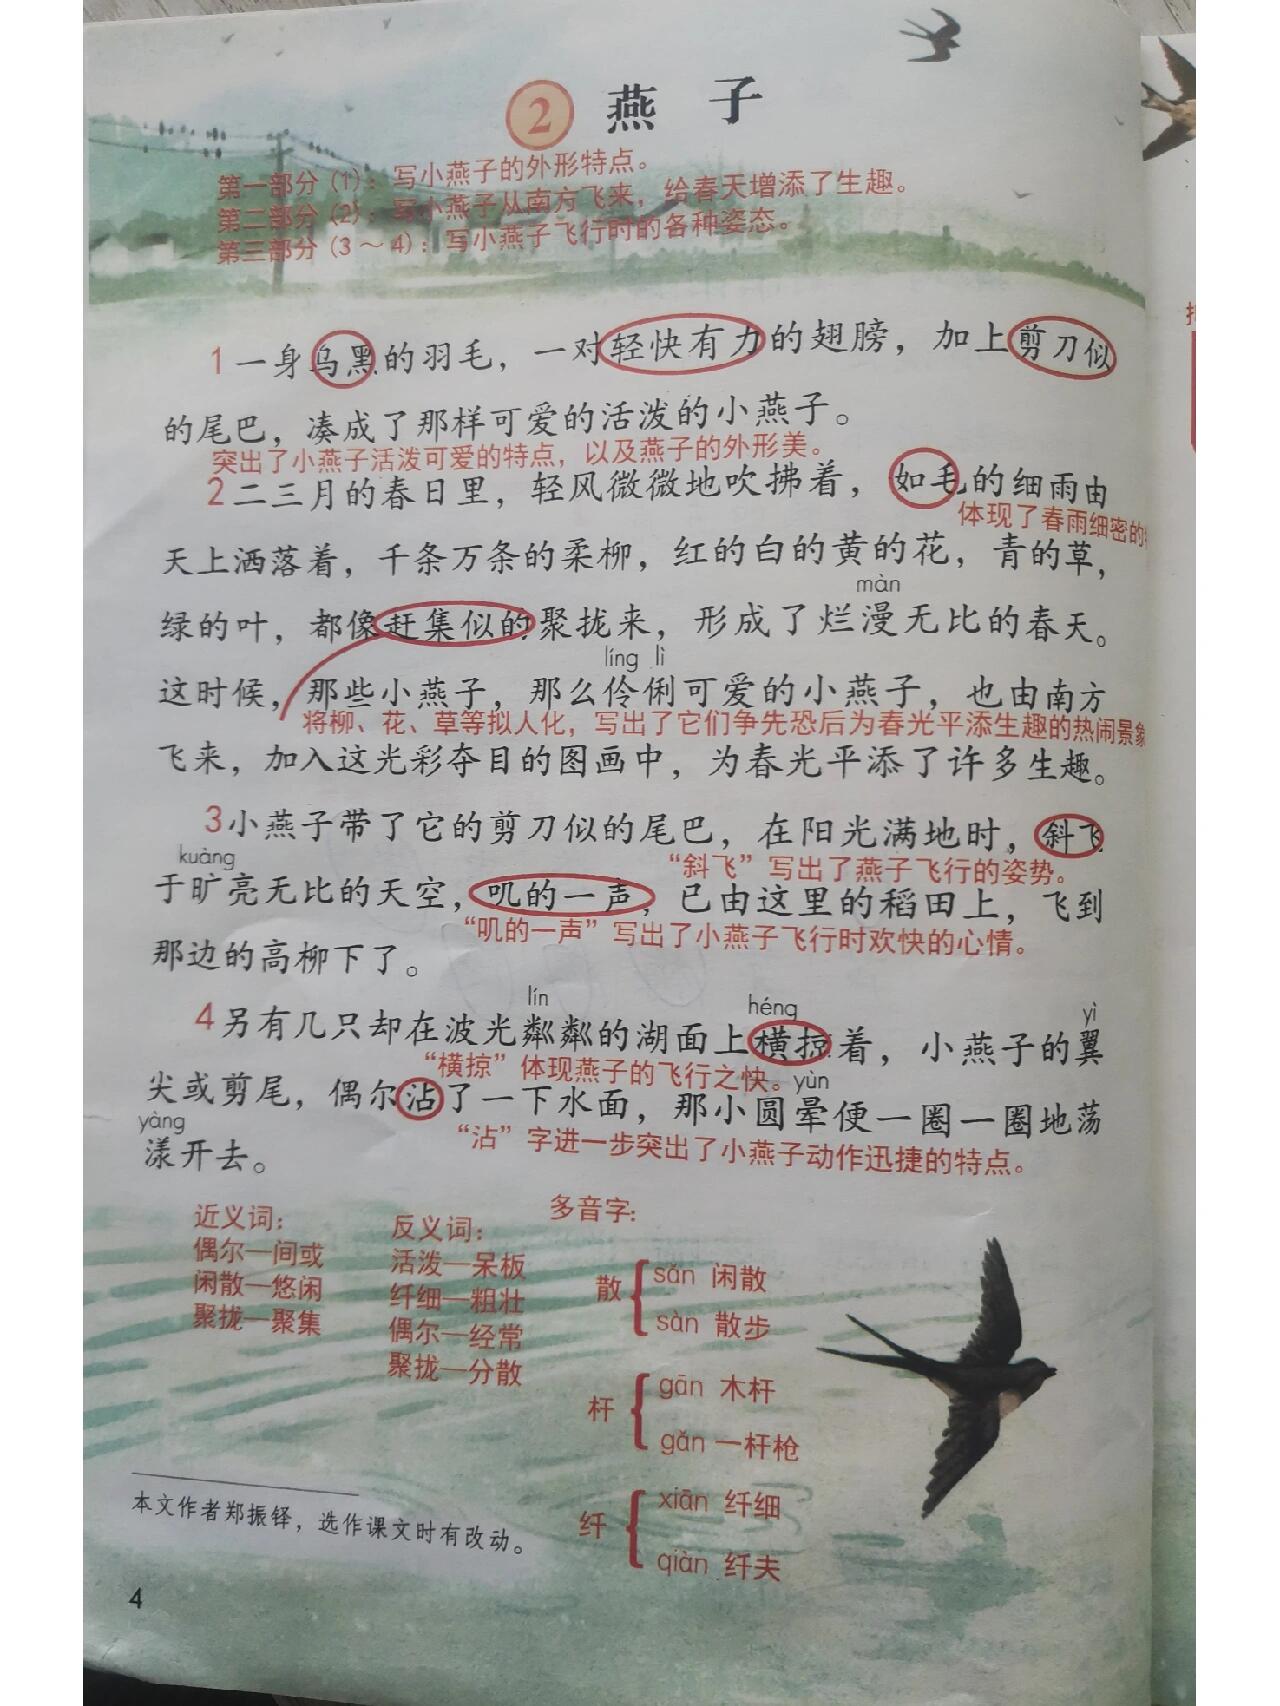 2 燕子
第一部分（1）：写小燕子的外形特点。
第二部分（2）：写小燕子从南方飞来，给春天增添了生趣。
第三部分（3～4）：写小燕子飞行时的各种姿态。
1一身乌黑的羽毛，一对轻快有力的翅膀，加上剪刀似
的尾巴，凑成了那样可爱的活泼的小燕子。
突出了小燕子活泼可爱的特点，以及燕子的外形美。
2二三月的春日里，轻风微微地吹拂着，如毛的细雨由
体现了春雨细密的
天上洒落着，千条万条的柔柳，红的白的黄的花，青的草，
màn
绿的叶，都像赶集似的聚拢来，形成了烂漫无比的春天。
líng lì
这时候，那些小燕子，那么伶俐可爱的小燕子，也由南方
将柳、花、草等拟人化，写出了它们争先恐后为春光平添生趣的热闹景象
飞来，加入这光彩夺目的图画中，为春光平添了许多生趣。
3小燕子带了它的剪刀似的尾巴，在阳光满地时，斜飞
kuàng
“斜飞”写出了燕子飞行的姿势。
于旷亮无比的天空，叽的一声，已由这里的稻田上，飞到
“叽的一声”写出了小燕子飞行时欢快的心情。
那边的高柳下了。
lín héng yì
4另有几只却在波光粼粼的湖面上横掠着，小燕子的翼
“横掠”体现燕子的飞行之快。yùn
尖或剪尾，偶尔沾了一下水面，那小圆晕便一圈一圈地荡
yàng
“沾”字进一步突出了小燕子动作迅捷的特点。
漾开去。
近义词：
偶尔—间或
闲散—悠闲
聚拢—聚集
反义词：
活泼—呆板
纤细—粗壮
偶尔—经常
聚拢—分散
多音字：
散
sǎn 闲散
sàn 散步
杆
gān 木杆
gǎn 一杆枪
纤
xiān 纤细
qiàn 纤夫
本文作者郑振铎，选作课文时有改动。
4